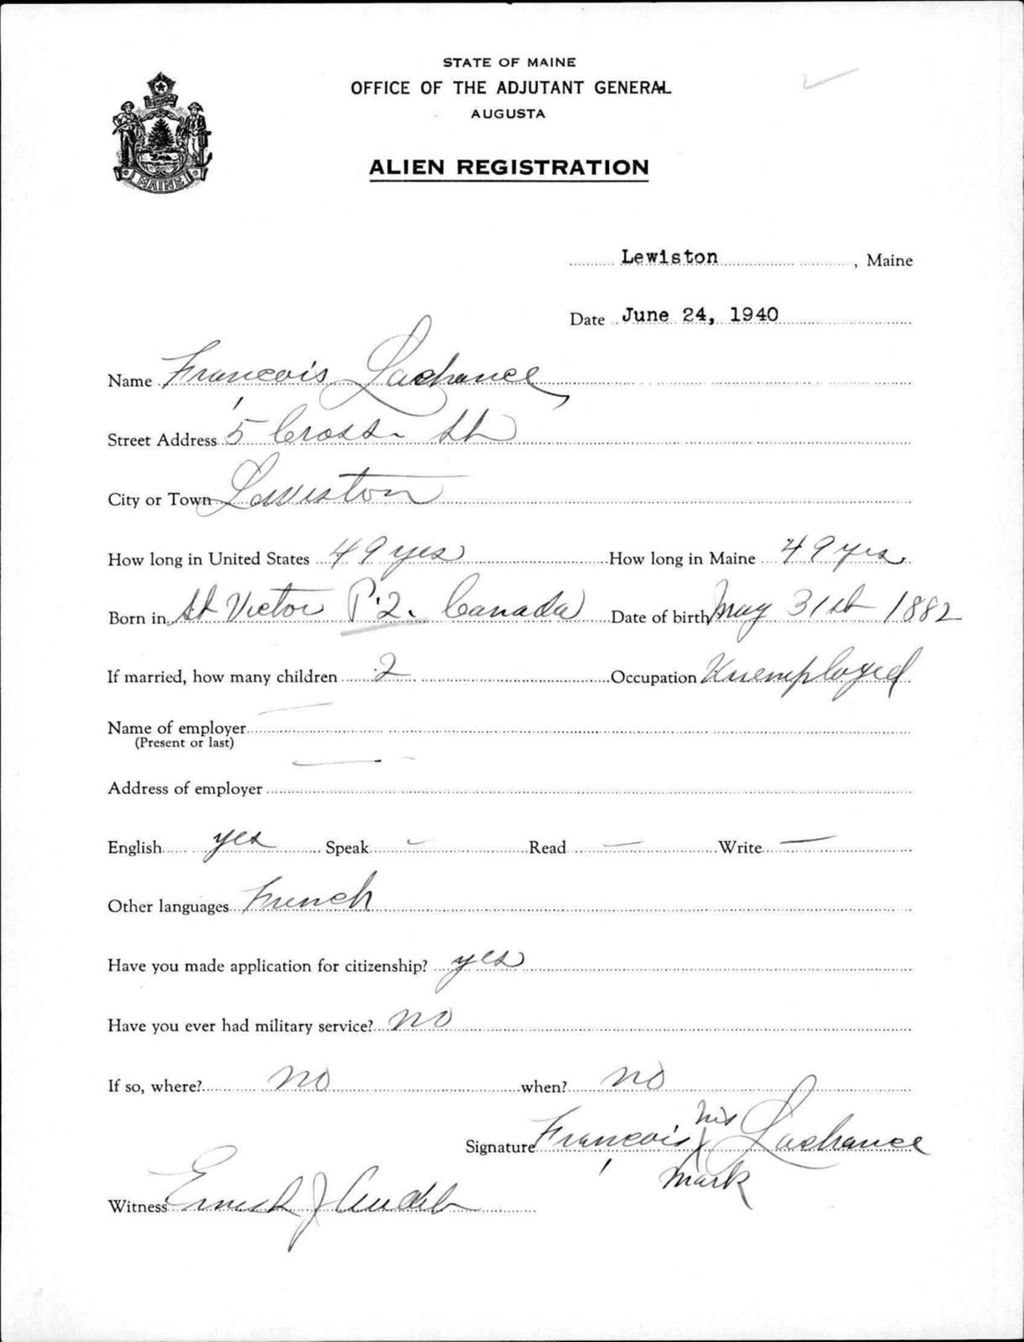 STATE OF MAINE
OFFICE OF THE ADJUTANT GENERAL
AUGUSTA
ALIEN REGISTRATION
MAINE
Lewiston, Maine
Date June 24, 1940
Name François Lachance
Street Address 5 Cross St
City or Town Lewiston
How long in United States 49 yes How long in Maine 49 yrs.
Born in St Victor P.Q. Canada Date of birth May 31st 1882
If married, how many children 2 Occupation Unemployed
Name of employer —
(Present or last)
Address of employer —
English yes Speak - Read — Write —
Other languages French
Have you made application for citizenship? yes
Have you ever had military service? no
If so, where? no when? no
Signature François his X mark Lachance
Witness Ernest J